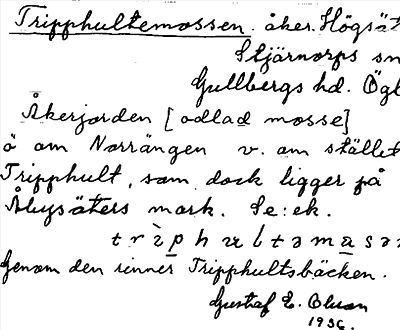 Tripphultemossen. åker. Högsät
Stjärnorps sn
Gullbergs hd. Ögl
Åkerjorden [odlad mosse]
ö om Norrängen v. om stället
Tripphult, som dock ligger på
Åbysäters mark. Se: ek.
Genom den rinner Tripphultsbäcken.
Gustaf E. Olson
1936.